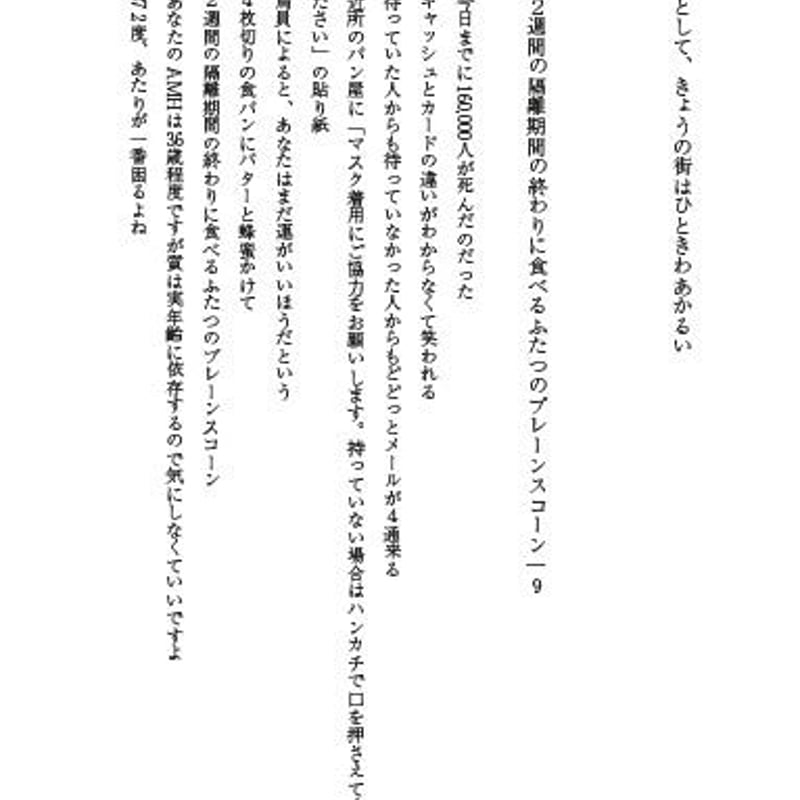 として、きょうの街はひときわあかるい
2週間の隔離期間の終わりに食べるふたつのプレーンスコーン―9
今日までに160,000人が死んだのだった
キャッシュとカードの違いがわからなくて笑われる
待っていた人からも待っていなかった人からもどどっとメールが4通来る
近所のパン屋に「マスク着用にご協力をお願いします。持っていない場合はハンカチで口を押さえて
ださい」の貼り紙
局員によると、あなたはまだ運がいいほうだという
4枚切りの食パンにバターと蜂蜜かけて
2週間の隔離期間の終わりに食べるふたつのプレーンスコーン
あなたのAMHは36歳程度ですが質は実年齢に依存するので気にしなくていいですよ
37 2度、あたりが一番困るよね